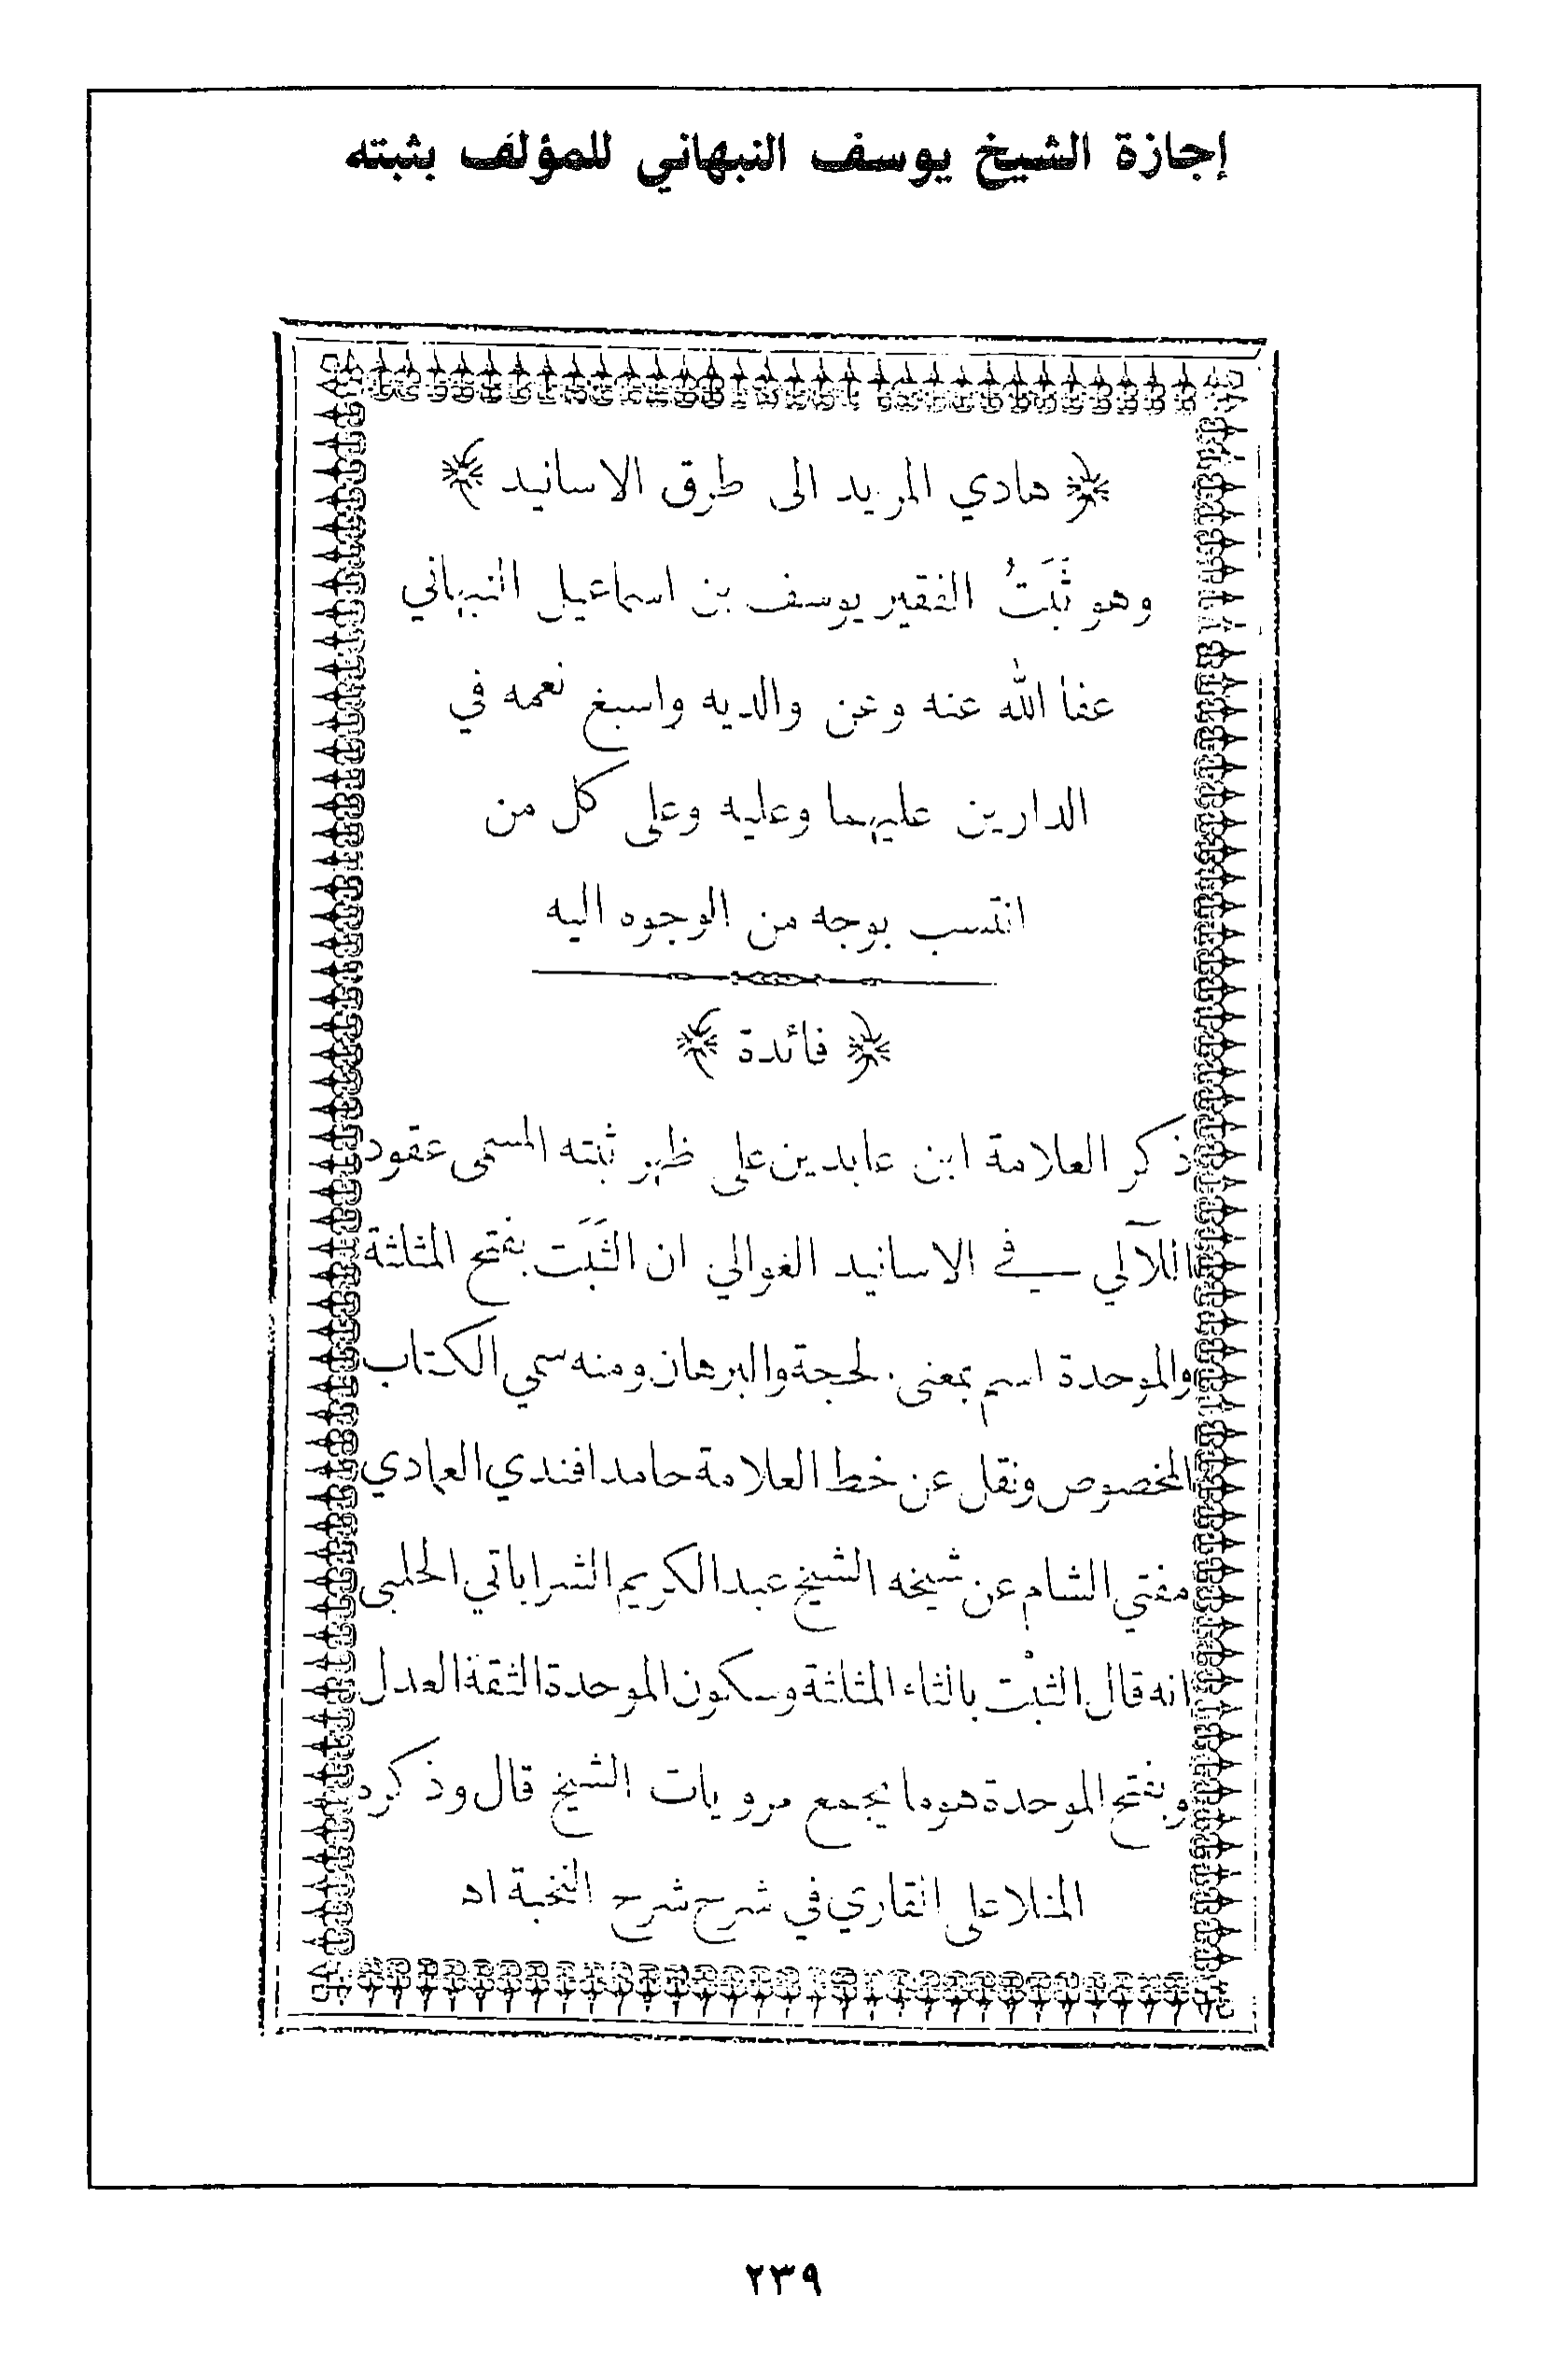 إجازة الشيخ يوسف النبهاني للمؤلف بثبته
﴿ هادي المريد الى طرق الاسانيد ﴾
وهو ثَبَتُ الفقير يوسف بن اسماعيل النبهاني
عفا الله عنه وعن والديه واسبغ نعمه في
الدارين عليهما وعليه وعلى كل من
انتسب بوجه من الوجوه اليه
﴿ فائدة ﴾
ذكر العلامة ابن عابدين على ظهر ثبته المسمى عقود
اللآلي في الاسانيد الغوالي ان الثَبَت بفتح المثلثة
والموحدة اسم بمعنى الحجة والبرهان ومنه سمي الكتاب
المخصوص ونقل عن خط العلامة حامد افندي العمادي
مفتي الشام عن شيخه الشيخ عبد الكريم الشراباتي الحلبي
انه قال الثبْت بالثاء المثلثة وسكون الموحدة الثقة العدل
وبفتح الموحدة هو ما يجمع مرويات الشيخ قال وذكره
المنلا علي القاري في شرح شرح النخبة اه
٢٣٩